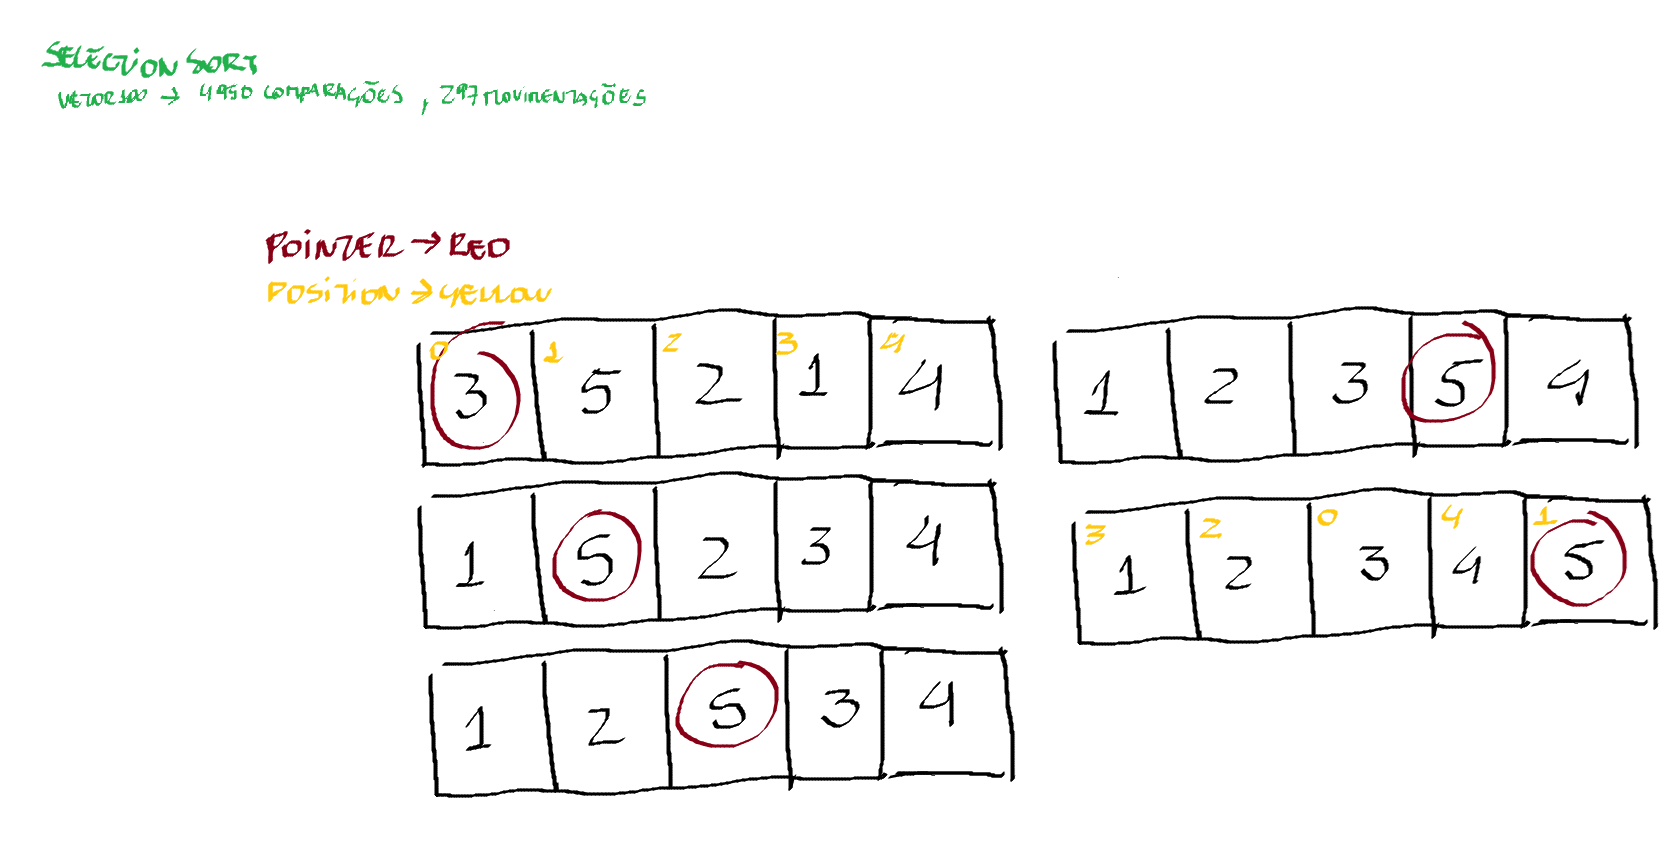 SELECTION SORT
VETOR 100 → 4950 COMPARAÇÕES, 297 MOVIMENTAÇÕES
POINTER → RED
POSITION → YELLOW
0 1 2 3 4
3 5 2 1 4
1 5 2 3 4
1 2 5 3 4
1 2 3 5 4
3 2 0 4 1
1 2 3 4 5